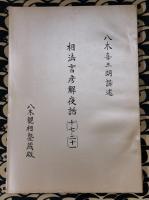 八木喜三朗講述
相法玄彦解夜話 十七-二十
八木観相塾蔵版